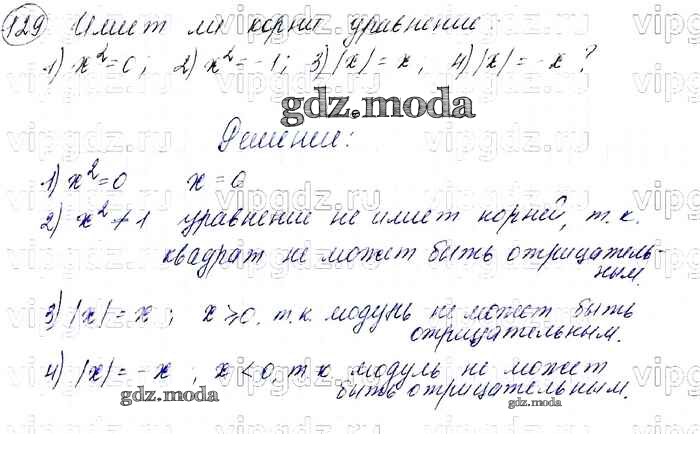 129 Имеет ли корни уравнение
1) x²=0; 2) x²=-1; 3) |x|=x, 4) |x|=-x?
gdz.moda
Решение:
1) x²=0 x=0
2) x²≠1 уравнение не имеет корней, т.к.
квадрат не может быть отрицатель-
ным.
3) |x|=x; x≥0, т.к. модуль не может быть
отрицательным.
4) |x|=-x; x<0, т.к. модуль не может
быть отрицательным.
gdz.moda gdz.moda
vipgdz.ru